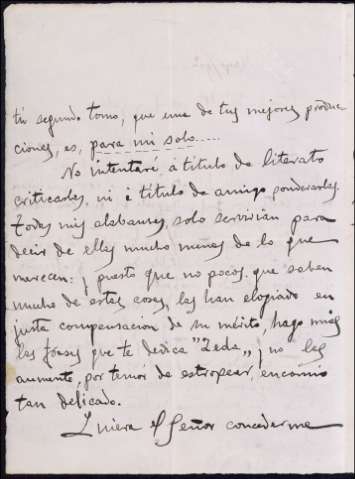 tú segundo tomo, que una de tus mejores produc
ciones, es, para mi solo.....
No intentaré á título de literato
criticarlas, ni á título de amigo ponderarlas.
Todas mis alabanzas, solo servirian para
decir de ellas mucho menos de lo que
merecen: y puesto que no pocos que saben
mucho de estas cosas, las han elogiado en
justa compensacion de su mérito, hago mias
las frases que te dedica "Zeda„ y no las
aumento, por temor de estropear, encomio
tan delicado.
Quiera el Señor concederme